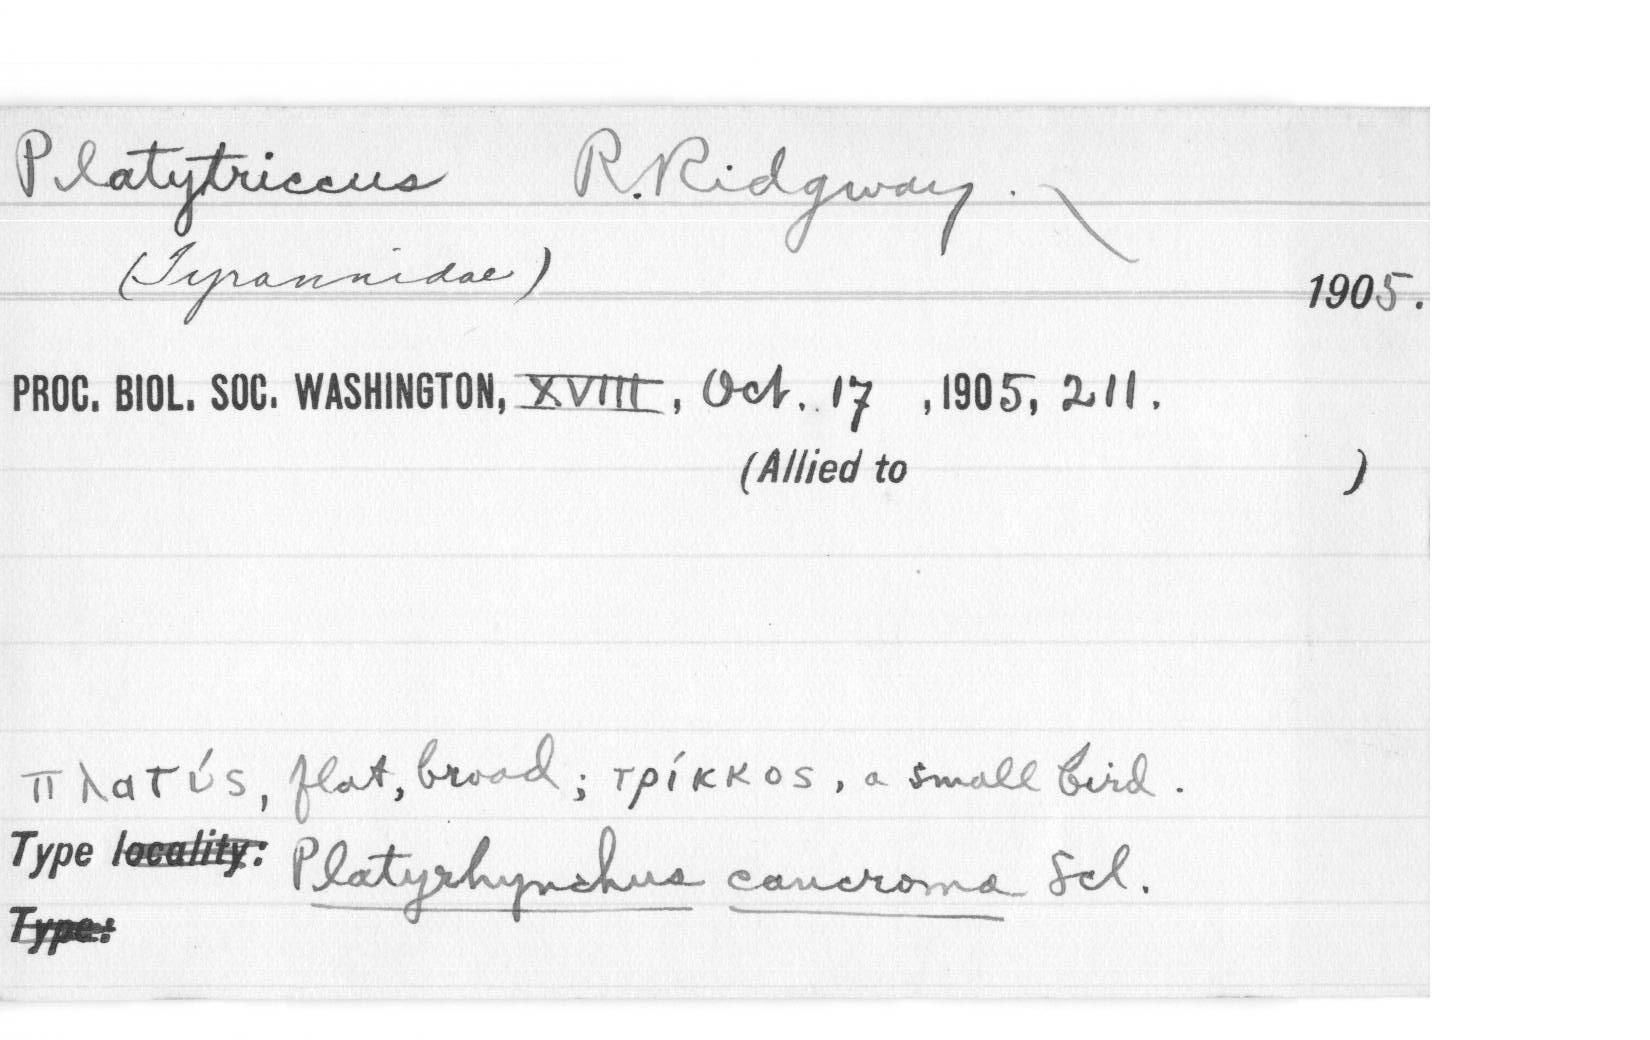 Platytriccus R. Ridgway.
(Tyrannidae)
1905.
PROC. BIOL. SOC. WASHINGTON, XVIII, Oct. 17, 1905, 211.
(Allied to )
πλατύs, flat, broad; τρίκκοs, a small bird.
Type locality: Platyrhynchus cancroma Scl.
Type: